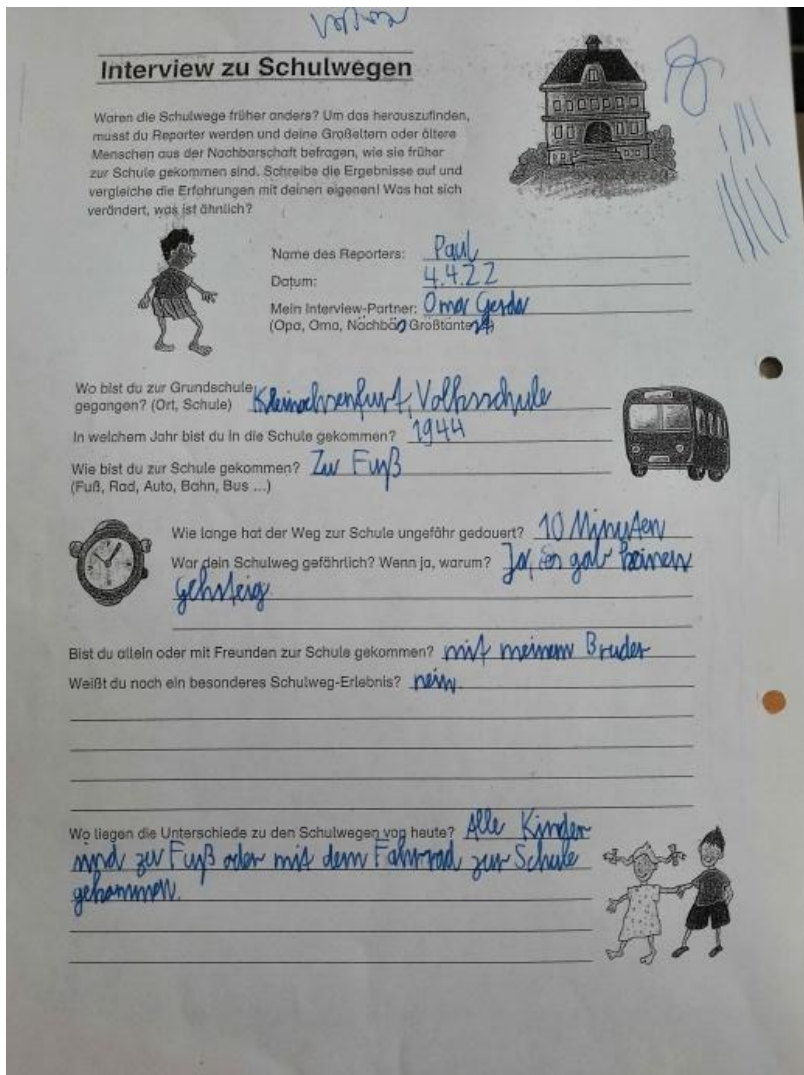 Interview zu Schulwegen
Waren die Schulwege früher anders? Um das herauszufinden,
musst du Reporter werden und deine Großeltern oder ältere
Menschen aus der Nachbarschaft befragen, wie sie früher
zur Schule gekommen sind. Schreibe die Ergebnisse auf und
vergleiche die Erfahrungen mit deinen eigenen! Was hat sich
verändert, was ist ähnlich?
Name des Reporters: Paul
Datum: 4.4.22
Mein Interview-Partner: Oma Gerda
(Opa, Oma, Großtante
Wo bist du zur Grundschule
gegangen? (Ort, Schule) Kleinochsenfurt, Volksschule
In welchem Jahr bist du in die Schule gekommen? 1944
Wie bist du zur Schule gekommen? Zu Fuß
(Fuß, Rad, Auto, Bahn, Bus ...)
Wie lange hat der Weg zur Schule ungefähr gedauert? 10 Minuten
War dein Schulweg gefährlich? Wenn ja, warum? Ja, es gab keinen
Gehsteig.
Bist du allein oder mit Freunden zur Schule gekommen? mit meinem Bruder
Weißt du noch ein besonderes Schulweg-Erlebnis? nein.
Wo liegen die Unterschiede zu den Schulwegen von heute? Alle Kinder
sind zu Fuß oder mit dem Fahrrad zur Schule
gekommen.